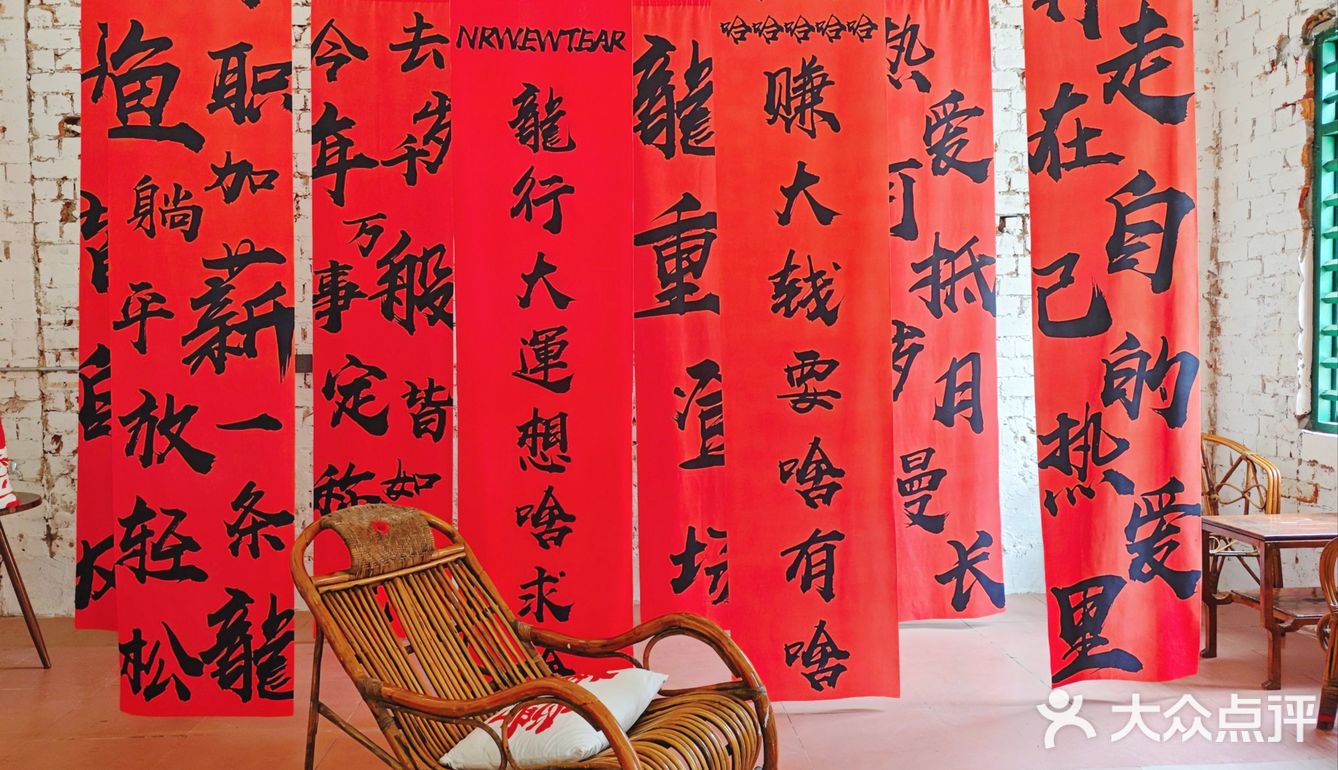 职加薪一条龍
鱼躺平放轻松
去岁千般皆如
今年万事定称
NRWEWTEAR
龍行大運想啥求
龍重
哈哈哈哈哈
赚大钱要啥有啥
热爱可抵岁月曼长
走在自己的热爱里
大众点评